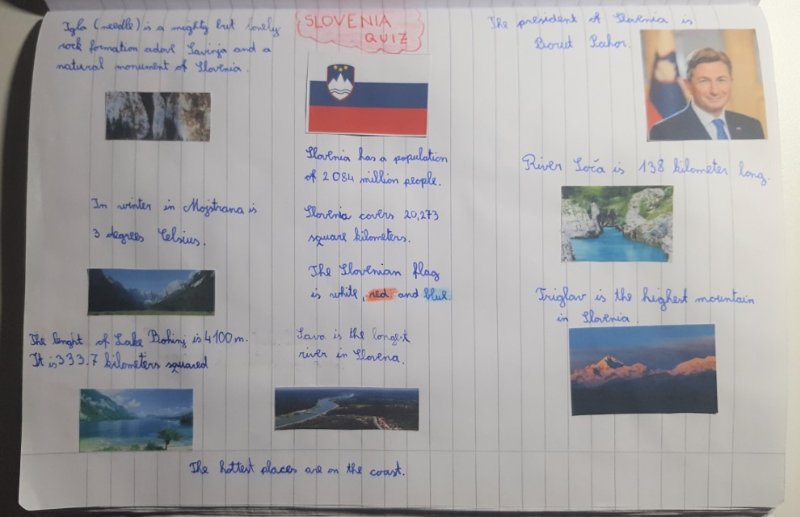 SLOVENIA
QUIZ
Igla (needle) is a mighty but lonely
rock formation above Savinja and a
natural monument of Slovenia.
In winter in Mojstrana is
3 degrees Celsius.
The lenght of Lake Bohinj is 4100 m.
It is 333.7 kilometers squared
Slovenia has a population
of 2 084 million people.
Slovenia covers 20,273
square kilometers.
The Slovenian flag
is white, red and blue
Sava is the longest
river in Slovenia.
The president of Slovenia is
Borut Pahor.
River Soča is 138 kilometer long.
Triglav is the highest mountain
in Slovenia.
The hottest places are on the coast.